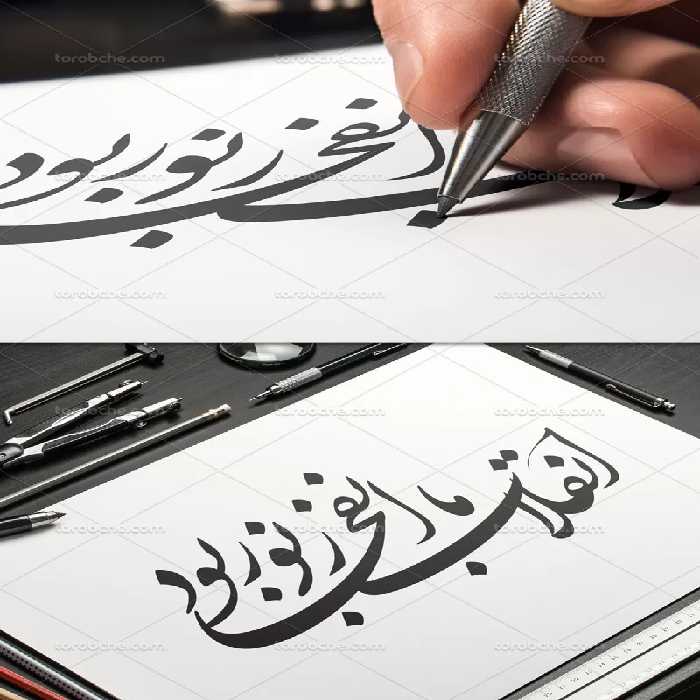 torobche.com torobche.com torobche.com
انفجار نور بود
torobche.com torobche.com torobche.com
torobche.com torobche.com torobche.com
torobche.com torobche.com torobche.com
انقلاب ما انفجار نور بود
torobche.com torobche.com torobche.com
torobche.com torobche.com torobche.com